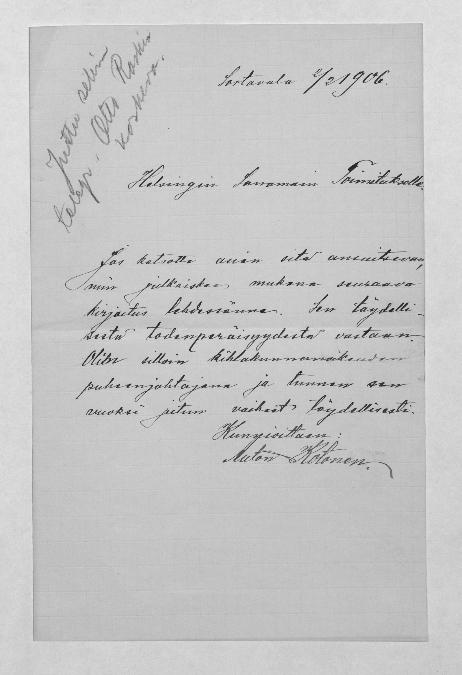 Juttu selvin
telegr. Otto
koskeva.
Sortavala 2/2 1906.
Helsingin Sanomain Toimitukselle.
Jos katsotte asian sitä ansaitsevan,
niin julkaiskaa mukana seuraava
kirjoitus lehdessänne. Sen täydelli-
sestä todenperäisyydestä vastaan.
Olin silloin kihlakunnanoikeuden
puheenjohtajana ja tunnen sen
vuoksi jutun vaiheet täydellisesti.
Kunnioittaen:
Anton Kotonen.